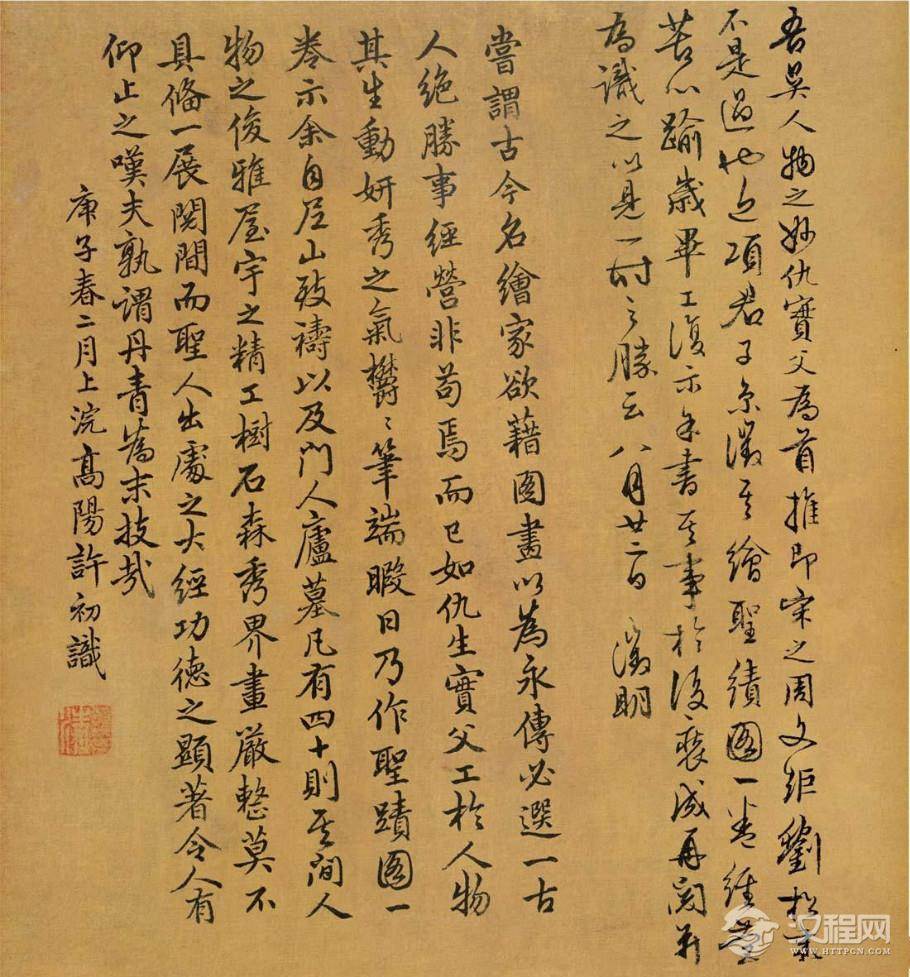 吾吴人物之妙仇實父為首推即宋之周文矩劉松年
不是過也近項君子京徵其繪聖績圖一卷經營
苦心踰歲畢工復示余書其事於後裝成再閱并
為識之以見一時之勝云八月廿二日 徵明
嘗謂古今名繪家欲藉圖畫以為永傳必選一古
人絶勝事經營非苟焉而已如仇生實父工於人物
其生動妍秀之氣欝〻筆端暇日乃作聖蹟圖一
卷示余自尼山致禱以及門人廬墓凡有四十則其間人
物之俊雅屋宇之精工樹石森秀界畫嚴整莫不
具俻一展閱間而聖人出處之大經功德之顯著令人有
仰止之嘆夫孰謂丹青為末技哉
庚子春二月上浣高陽許初識
汉程网
WWW.HTTPCN.COM